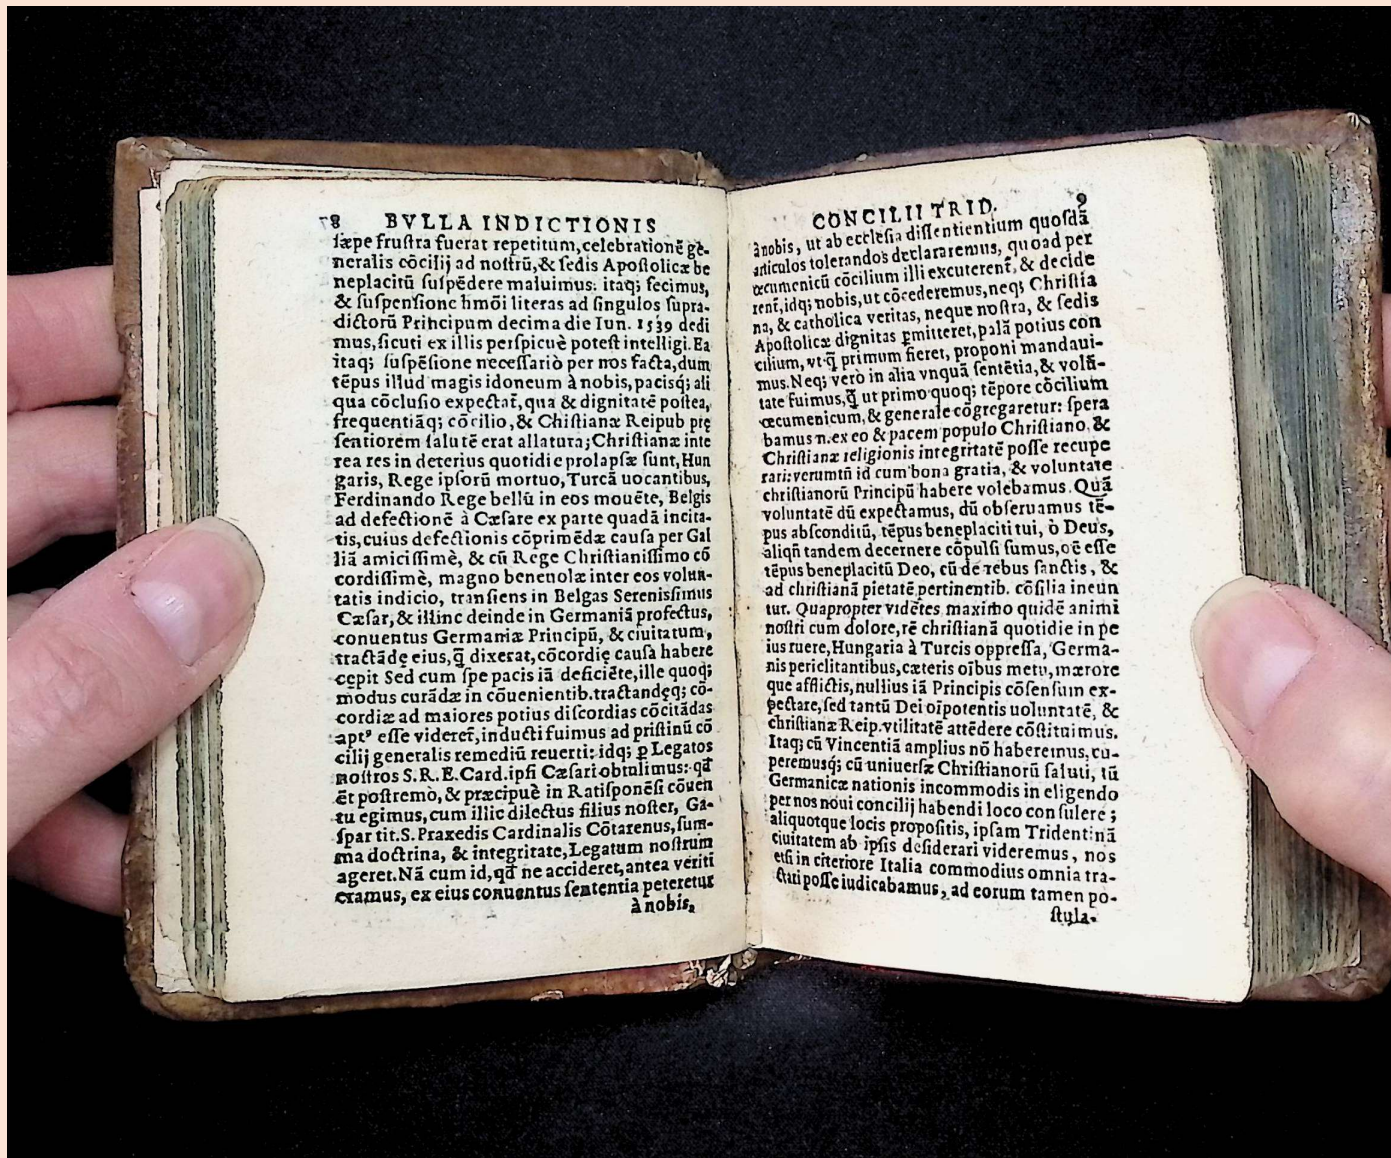 8 BVLLA INDICTIONIS
sæpe frustra fuerat repetitum, celebrationē gē-
neralis cōcilij ad nostrū, & sedis Apostolicæ be
neplacitū suspēdere maluimus: itaq; fecimus,
& suspensione hmōi literas ad singulos supra-
dictorū Principum decima die Iun. 1539 dedi
mus, sicuti ex illis perspicuè potest intelligi. Ea
itaq; suspēsione necessariò per nos facta, dum
tēpus illud magis idoneum à nobis, pacisq; ali
qua cōclusio expectat̄, qua & dignitatē postea,
frequentiāq; cōcilio, & Chistianæ Reipub prę
sentiorem salutē erat allatura; Christianæ inte
rea res in deterius quotidie prolapsæ sunt, Hun
garis, Rege ipsorū mortuo, Turcā uocantibus,
Ferdinando Rege bellū in eos mouēte, Belgis
ad defectionē à Cæsare ex parte quadā incita-
tis, cuius defectionis cōprimēdæ causa per Gal
liā amicissimè, & cū Rege Christianissimo cō
cordissimè, magno beneuolæ inter eos volun-
tatis indicio, transiens in Belgas Serenissimus
Cæsar, & illinc deinde in Germaniā profectus,
conuentus Germaniæ Principū, & ciuitatum,
tractādę eius, q̄ dixerat, cōcordię causa habere
cępit Sed cum spe pacis iā deficiēte, ille quoq;
modus curādæ in cōuenientib. tractandęq; cō-
cordiæ ad maiores potius discordias cōcitādas
aptꝰ esse videret̄, inducti fuimus ad pristinū cō
cilij generalis remediū reuerti: idq; ꝑ Legatos
nostros S. R. E. Card. ipsi Cæsari obtulimus: qđ
ēt postremò, & præcipuè in Ratisponēsi cōuen
tu egimus, cum illic dilectus filius noster, Ga-
spar tit. S. Praxedis Cardinalis Cōtarenus, sum-
ma doctrina, & integritate, Legatum nostrum
ageret. Nā cum id, qđ ne accideret, antea veriti
eramus, ex eius conuentus sententia peteretur
à nobis,
CONCILII TRID. 9
à nobis, ut ab ecclesia dissentientium quosdā
articulos tolerandos declararemus, quoad per
œcumenicū cōcilium illi excuterent̄, & decide
rent̄, idq; nobis, ut cōcederemus, neq; Christia
na, & catholica veritas, neque nostra, & sedis
Apostolicæ dignitas ꝑmitteret, palā potius con
cilium, vt q̄ primum fieret, proponi mandaui-
mus. Neq; verò in alia vnquā sentētia, & volū-
tate fuimus, q̄ ut primo quoq; tēpore cōcilium
œcumenicum, & generale cōgregaretur: spera
bamus n. ex eo & pacem populo Christiano, &
Christianæ religionis integritatē posse recupe
rari: verumtñ id cum bona gratia, & voluntate
christianorū Principū habere volebamus. Quā
voluntatē dū expectamus, dū obseruamus tē-
pus absconditū, tēpus beneplaciti tui, ò Deus,
aliqñ tandem decernere cōpulsi sumus, oē esse
tēpus beneplacitū Deo, cū de rebus sanctis, &
ad christianā pietatē pertinentib. cōsilia ineun
tur. Quapropter vidētes maximo quidē animi
nostri cum dolore, rē christianā quotidie in pe
ius ruere, Hungaria à Turcis oppressa, Germa-
nis periclitantibus, cæteris oībus metu, mærore
que afflictis, nullius iā Principis cōsensum ex-
pectare, sed tantū Dei oīpotentis uoluntatē, &
christianæ Reip. vtilitatē attēdere cōstituimus.
Itaq; cū Vincentiā amplius nō haberemus, cu-
peremusq; cū uniuersæ Christianorū saluti, tū
Germanicæ nationis incommodis in eligendo
per nos noui concilij habendi loco consulere;
aliquotque locis propositis, ipsam Tridentinā
ciuitatem ab ipsis desiderari videremus, nos
etsi in citeriore Italia commodius omnia tra-
ctari posse iudicabamus, ad eorum tamen po-
stula-